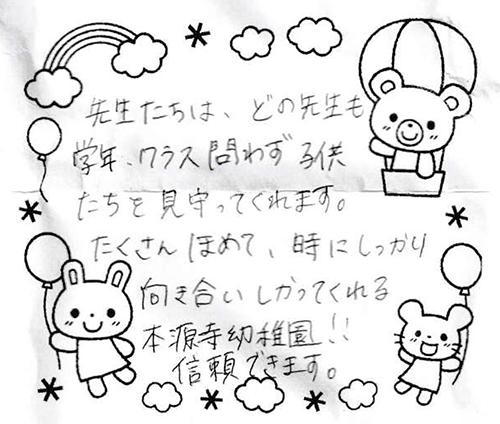 先生たちは、どの先生も
学年、クラス問わず子供
たちを見守ってくれます。
たくさんほめて、時にしっかり
向き合いしかってくれる
本源寺幼稚園!!
信頼できます。